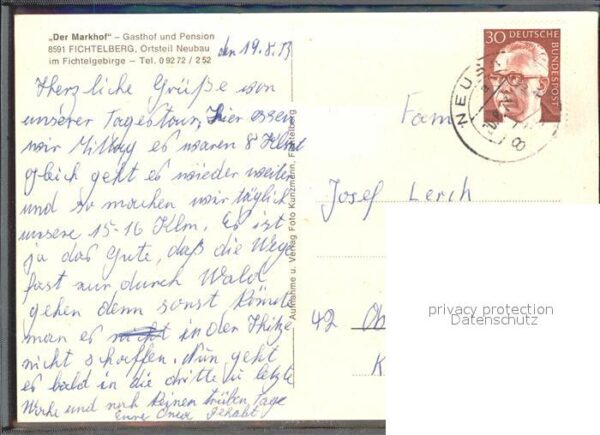 „Der Markhof" – Gasthof und Pension
8591 FICHTELBERG, Ortsteil Neubau
im Fichtelgebirge – Tel. 0 92 72 / 2 52
den 19.8.73
Herzliche Grüße von
unserer Tagestour, hier essen
wir Mittag es waren 8 Klm
gleich geht es wieder weiter
und so machen wir täglich
unsere 15-16 Klm. Es ist
ja das Gute, daß die Wege
fast nur durch Wald
gehen denn sonst könnte
man es in der Hitze
nicht schaffen. Nun geht
es bald in die dritte u. letzte
Woche und noch keinen trüben Tage
Eure gehabt
Aufnahme u. Verlag Foto Kunzmann, Fichtelberg
30 DEUTSCHE BUNDESPOST
NEU
Fam
Josef Lerch
42 Ob
K
privacy protection
Datenschutz